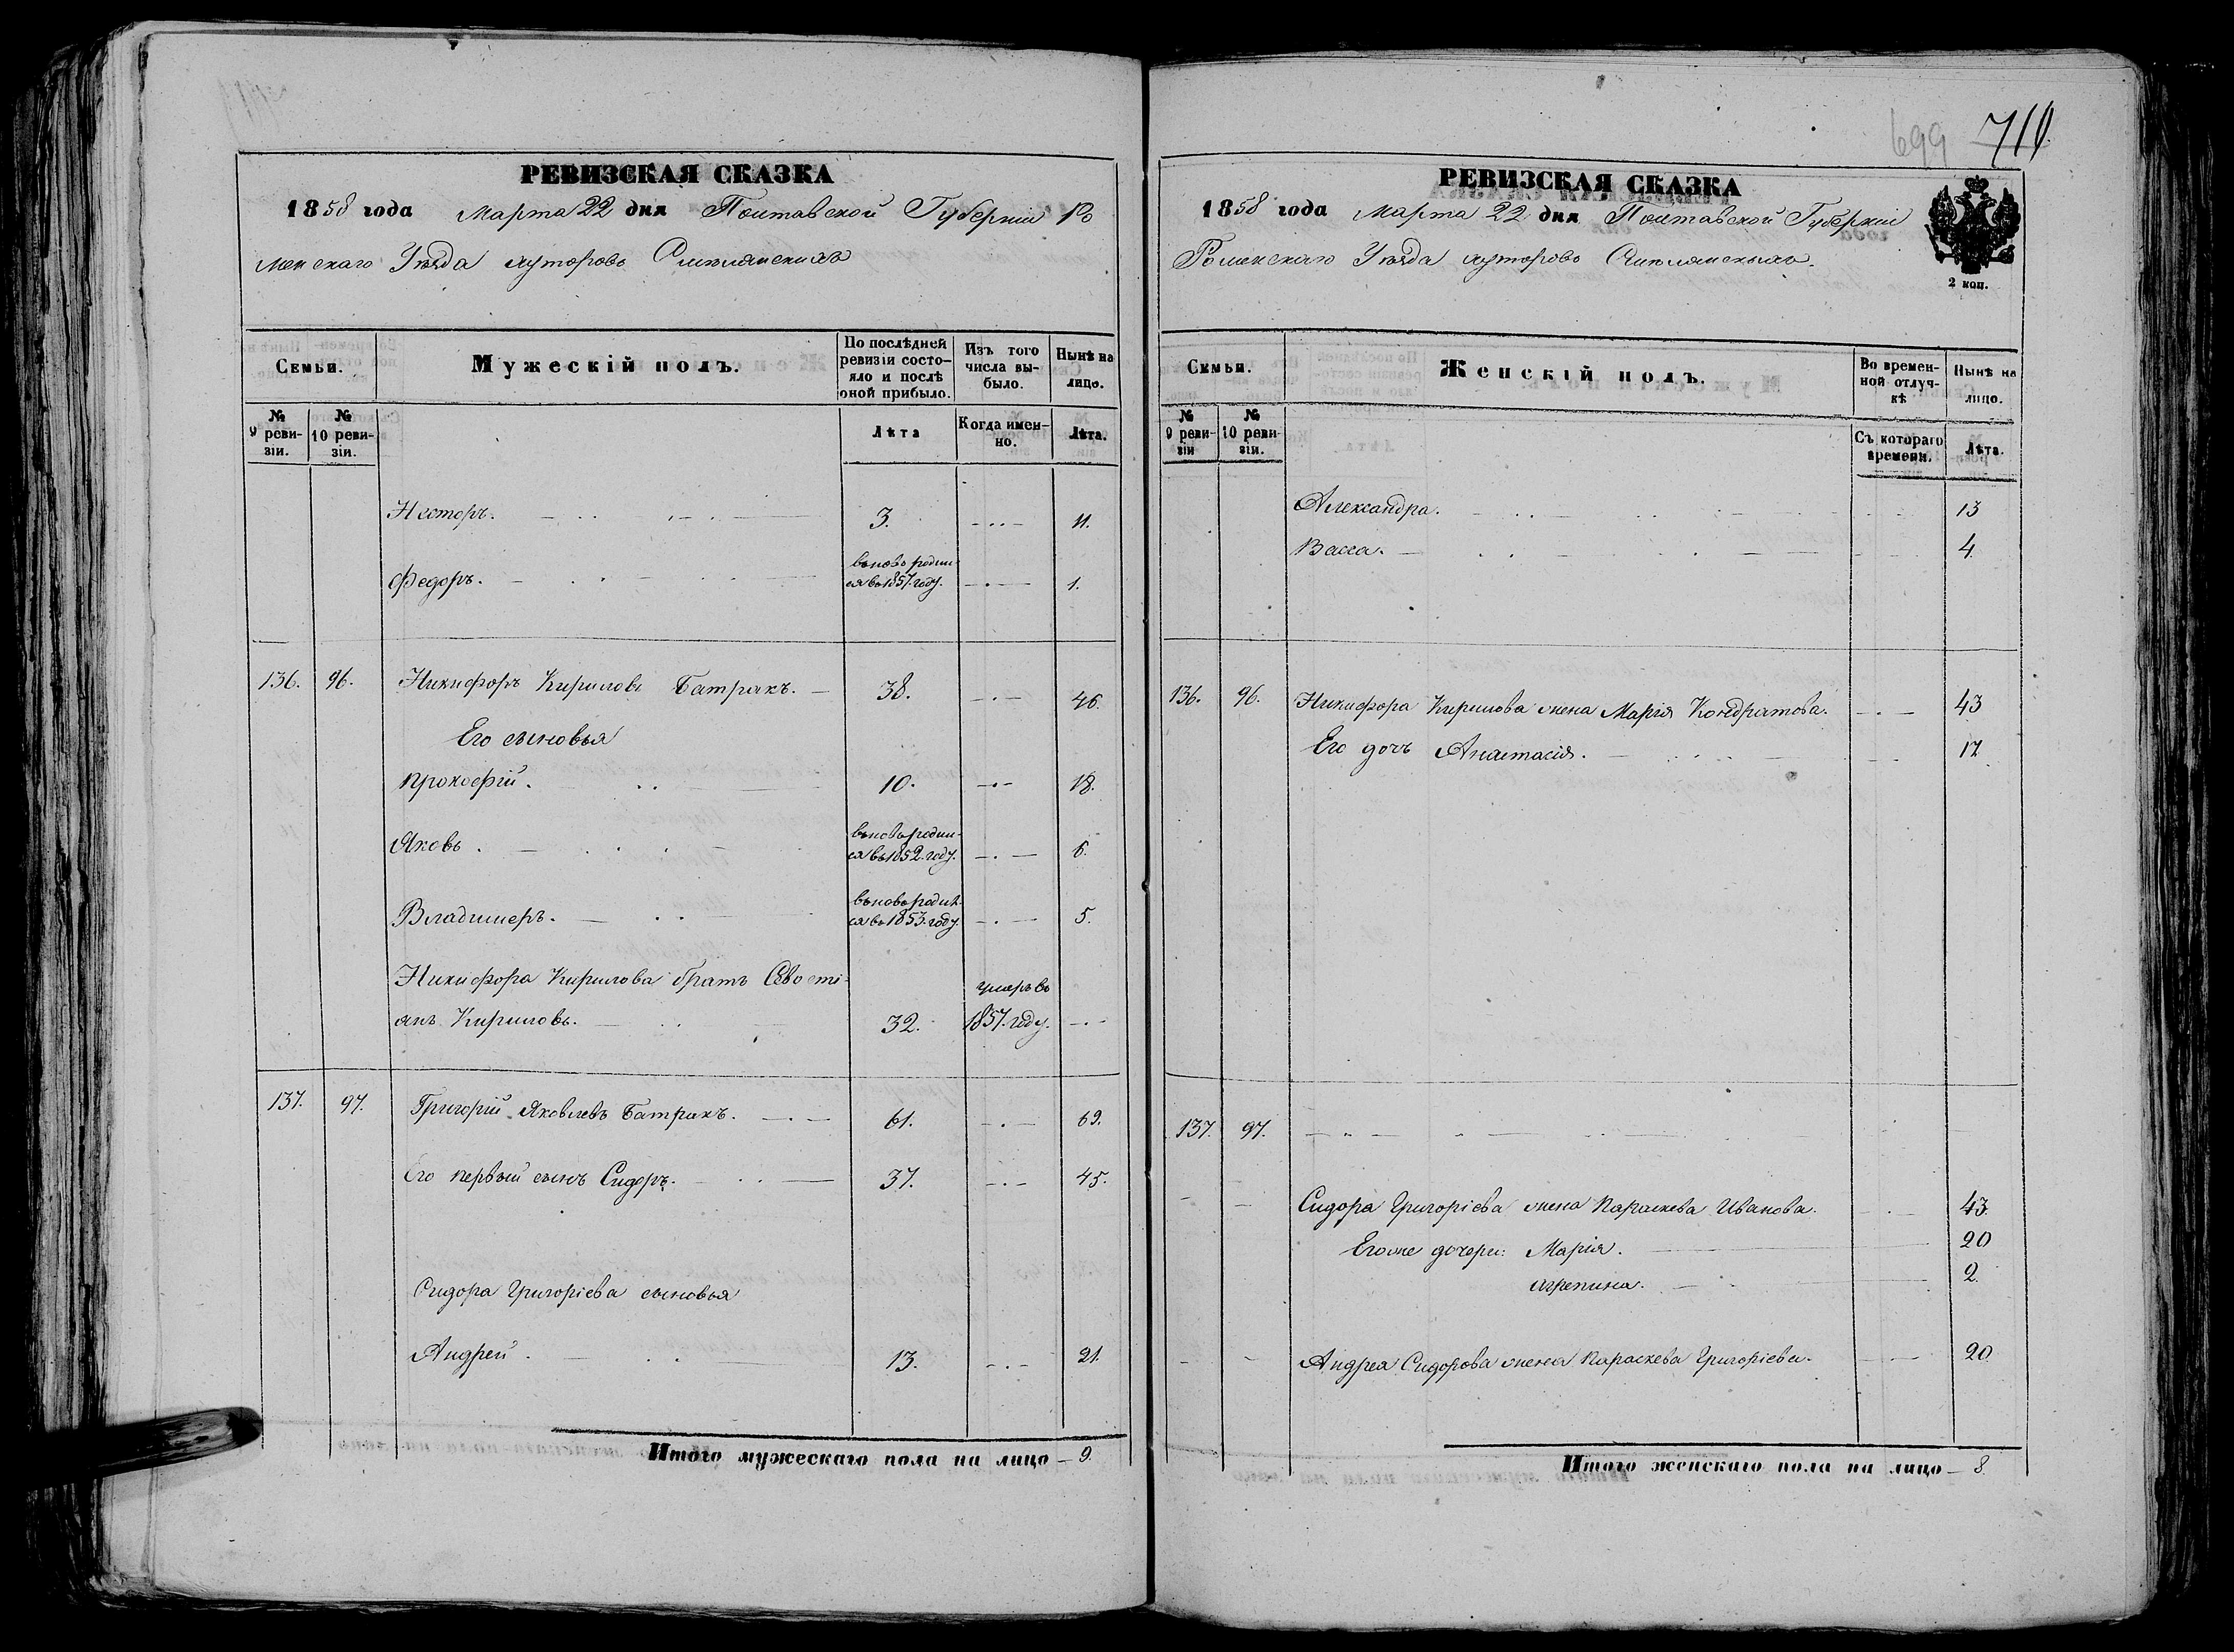 РЕВИЗСКАЯ СКАЗКА
1858 года Марта 22 дня Полтавской Губерніи Ро
менскаго Уѣзда хуторовъ
Семьи.
Мужескій полъ.
По послѣдней ревизіи состояло и послѣ оной прибыло.
Изъ того числа выбыло.
Нынѣ на лицо.
№ 9 ревизіи.
№ 10 ревизіи.
Лѣта
Когда именно.
Лѣта.
Несторъ. 3. 11.
Федоръ. вновь родился въ 1857. году. 1.
136. 96. Никифоръ Кириловъ Батракъ. 38. 46.
Его сыновья
Прокофій. 10. 18.
Яковъ. вновь родился въ 1852. году. 6.
Владимеръ. вновь родился въ 1853. году. 5.
Никифора Кирилова братъ Севості-
анъ Кириловъ. 32. умеръ въ 1857. году.
137. 97. Григорій Яковлевъ Батракъ. 61. 69.
Его первый сынъ Сидоръ. 37. 45.
Сидора Григоріева сыновья
Андрей. 13. 21.
Итого мужескаго пола на лицо 9.
699 711
РЕВИЗСКАЯ СКАЗКА
1858 года Марта 22 дня Полтавской Губерніи
Роменскаго Уѣзда хуторовъ
2 коп.
Семьи.
Женскій полъ.
Во временной отлучкѣ
Нынѣ на лицо.
№ 9 ревизіи
№ 10 ревизіи.
Съ котораго времени.
Лѣта.
Александра. 13
Васса. 4.
136. 96. Никифора Кирилова жена Марія Кондратова. 43
Его дочь Анастасія. 17
137. 97.
Сидора Григоріева жена Параскева Иванова. 43.
Егоже дочери: Марія. 20
Агрепина. 2.
Андрея Сидорова жена Параскева Григоріева. 20
Итого женскаго пола на лицо 8.